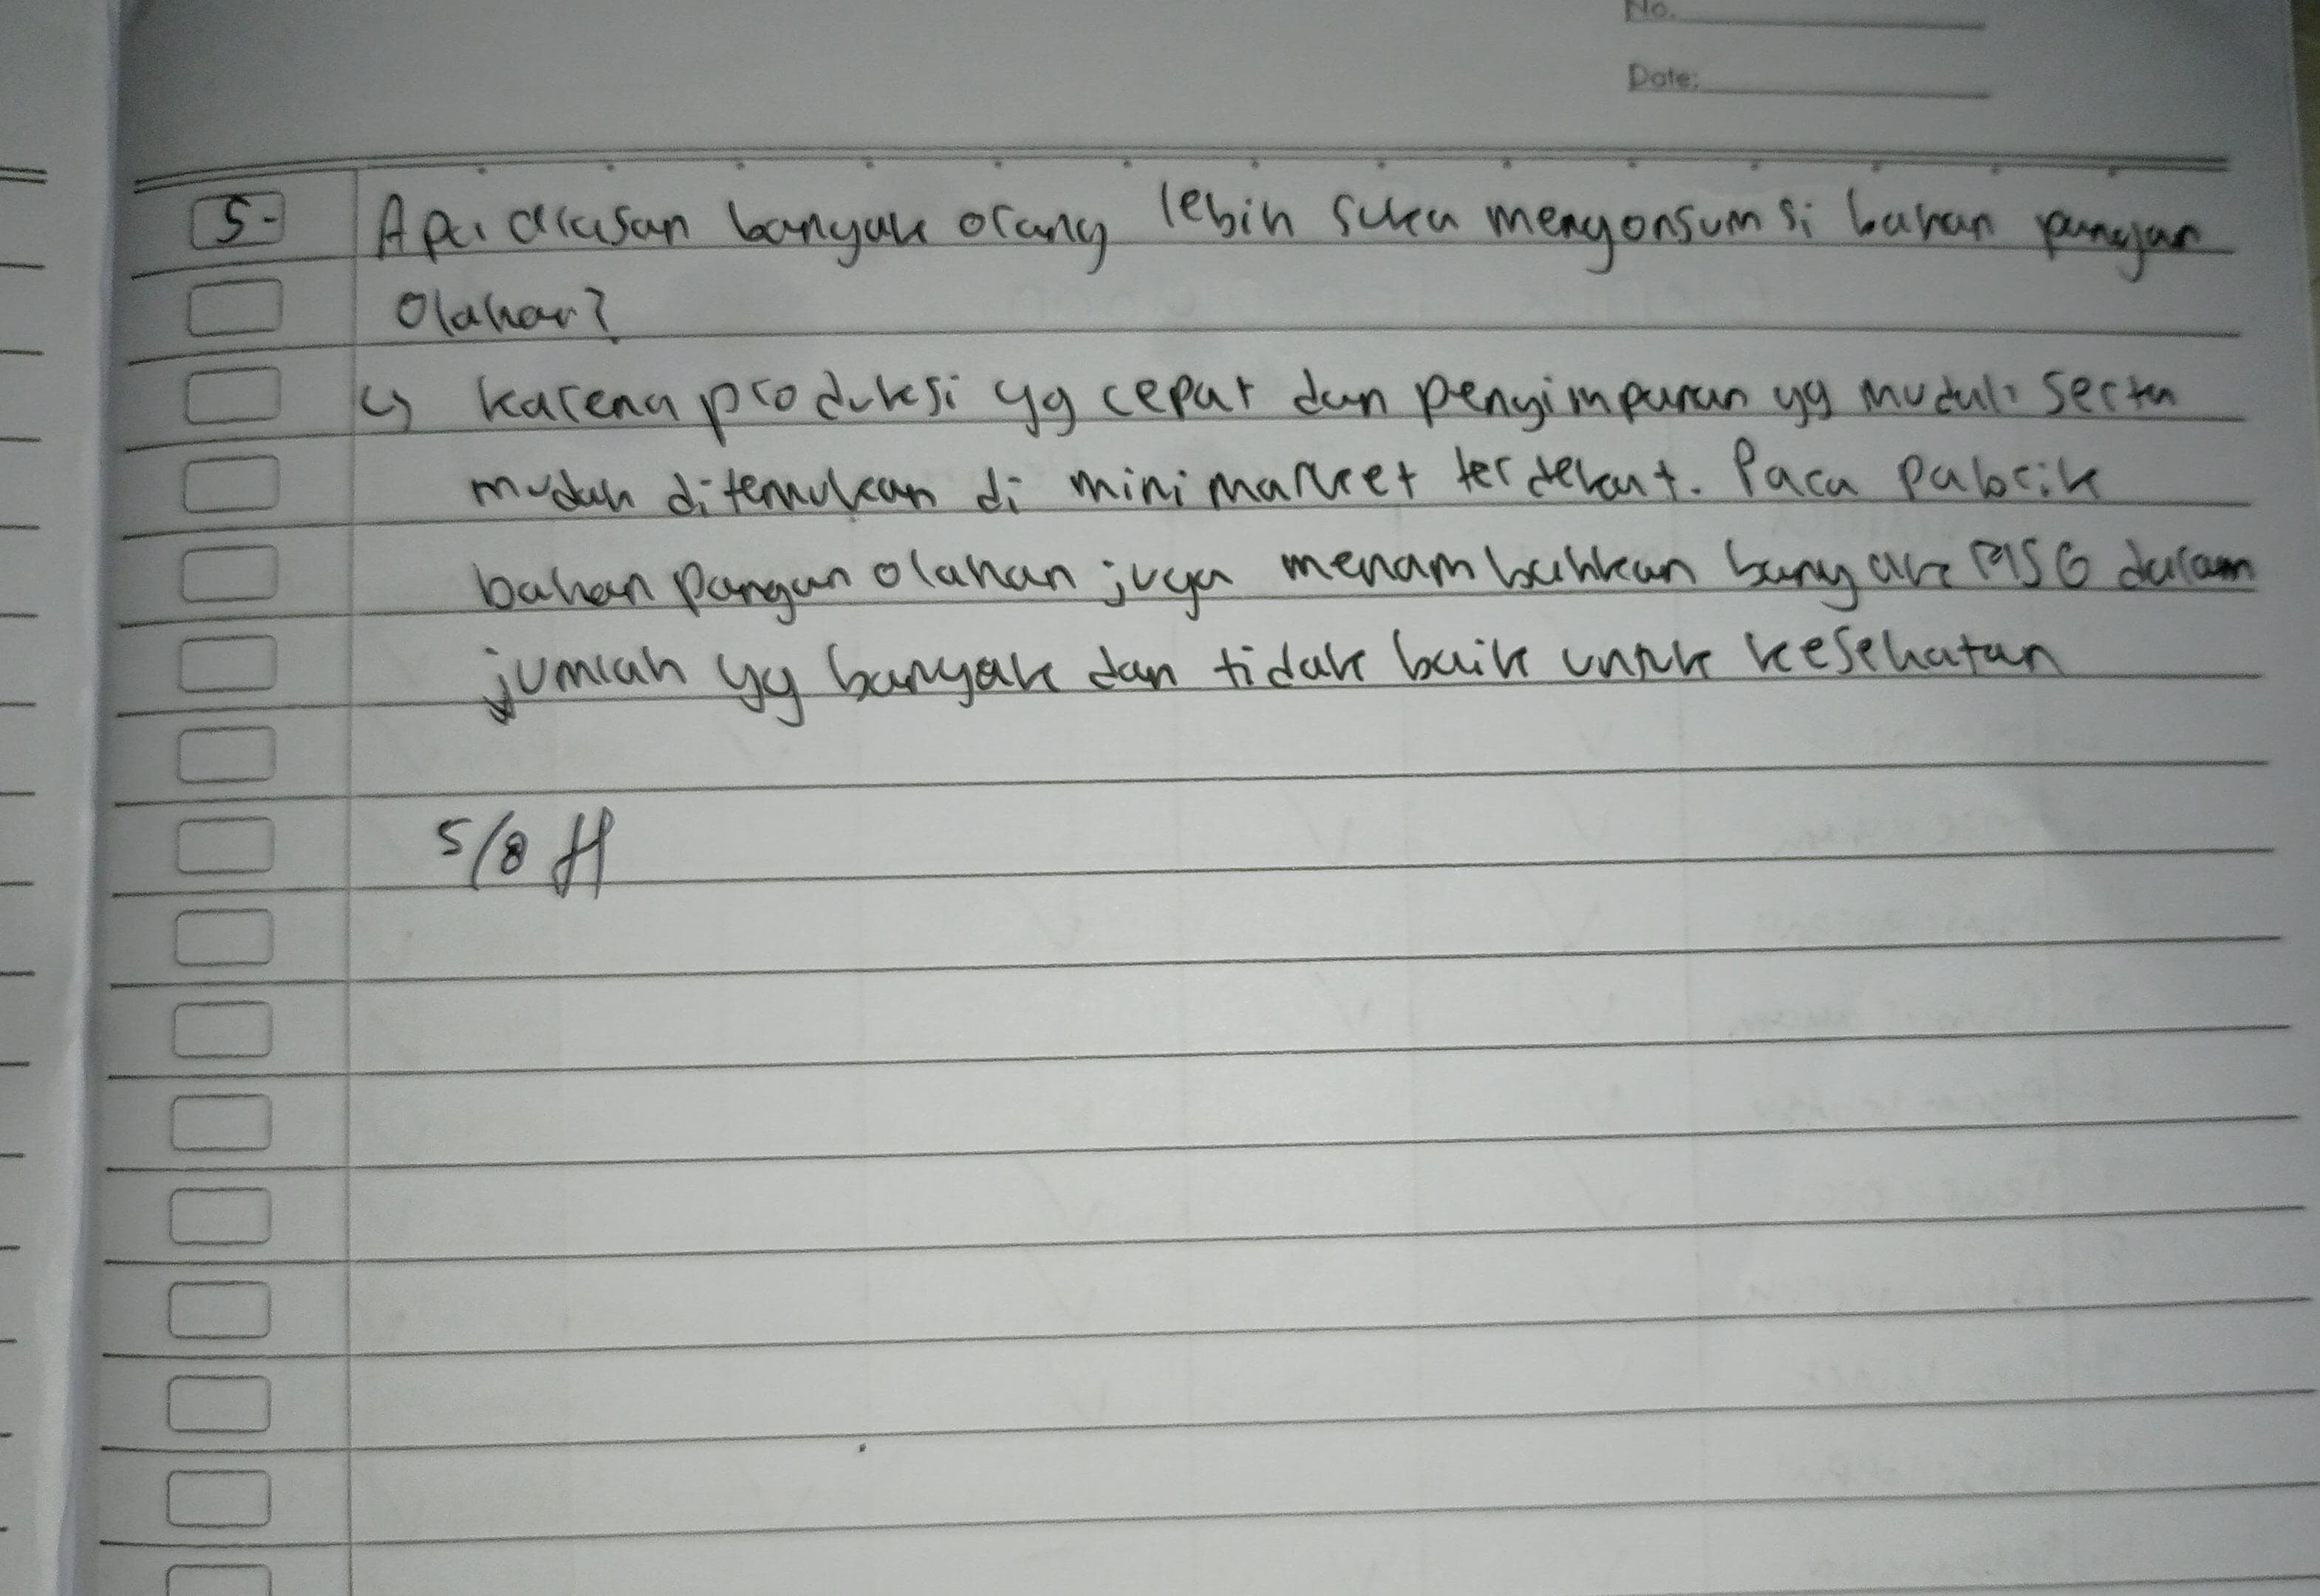 No.
Date:
5. Apa alasan banyak orang lebih suka mengonsumsi bahan pangan
Olahan?
↳ karena produksi yg cepat dan penyimpanan yg mudah serta
mudah ditemukan di minimarket terdekat. Para pabrik
bahan pangan olahan juga menambahkan banyak MSG dalam
jumlah yg banyak dan tidak baik untuk kesehatan
5/8